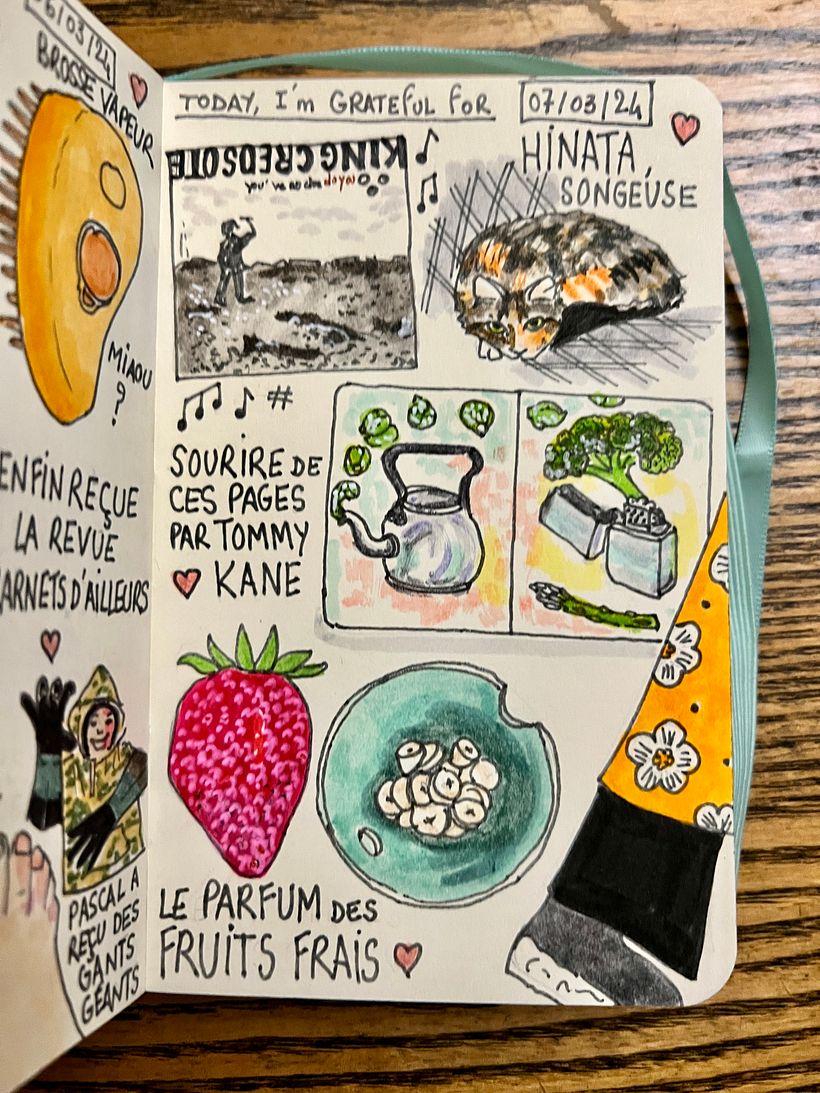 06/03/24
BROSSE VAPEUR
MIAOU
?
ENFIN REÇUE
LA REVUE
CARNETS D'AILLEURS
PASCAL A
REÇU DES
GANTS
GÉANTS
TODAY, I'm GRATEFUL FOR
07/03/24
KING CREOSOTE
you've no clue do you
HINATA,
SONGEUSE
#
SOURIRE DE
CES PAGES
PAR TOMMY
KANE
LE PARFUM DES
FRUITS FRAIS